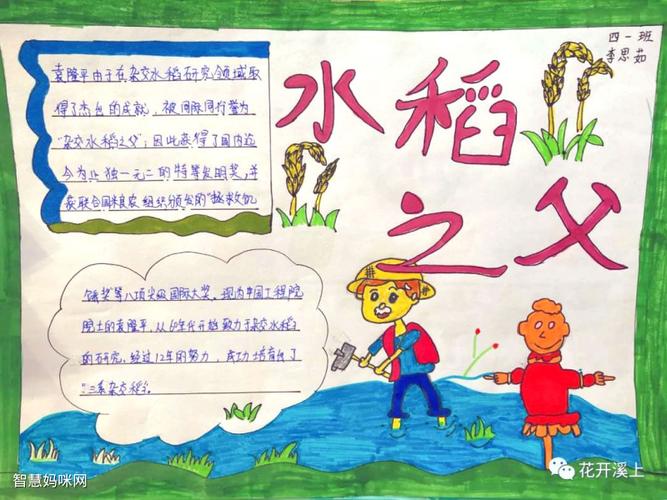 四一班
李思茹
水稻
之父
袁隆平由于在杂交水稻研究领域取
得了杰出的成就，被国际同行誉为
“杂交水稻之父”；因此获得了国内迄
今为止独一无二的特等发明奖，并
获联合国粮农组织颁发的“拯救饥
饿奖等八项尖级国际大奖。现为中国工程院
院士的袁隆平，从60年代开始致力于杂交水稻
的研究，经过12年的努力，成功培育出了
“三系杂交稻。
智慧妈咪网
花开溪上